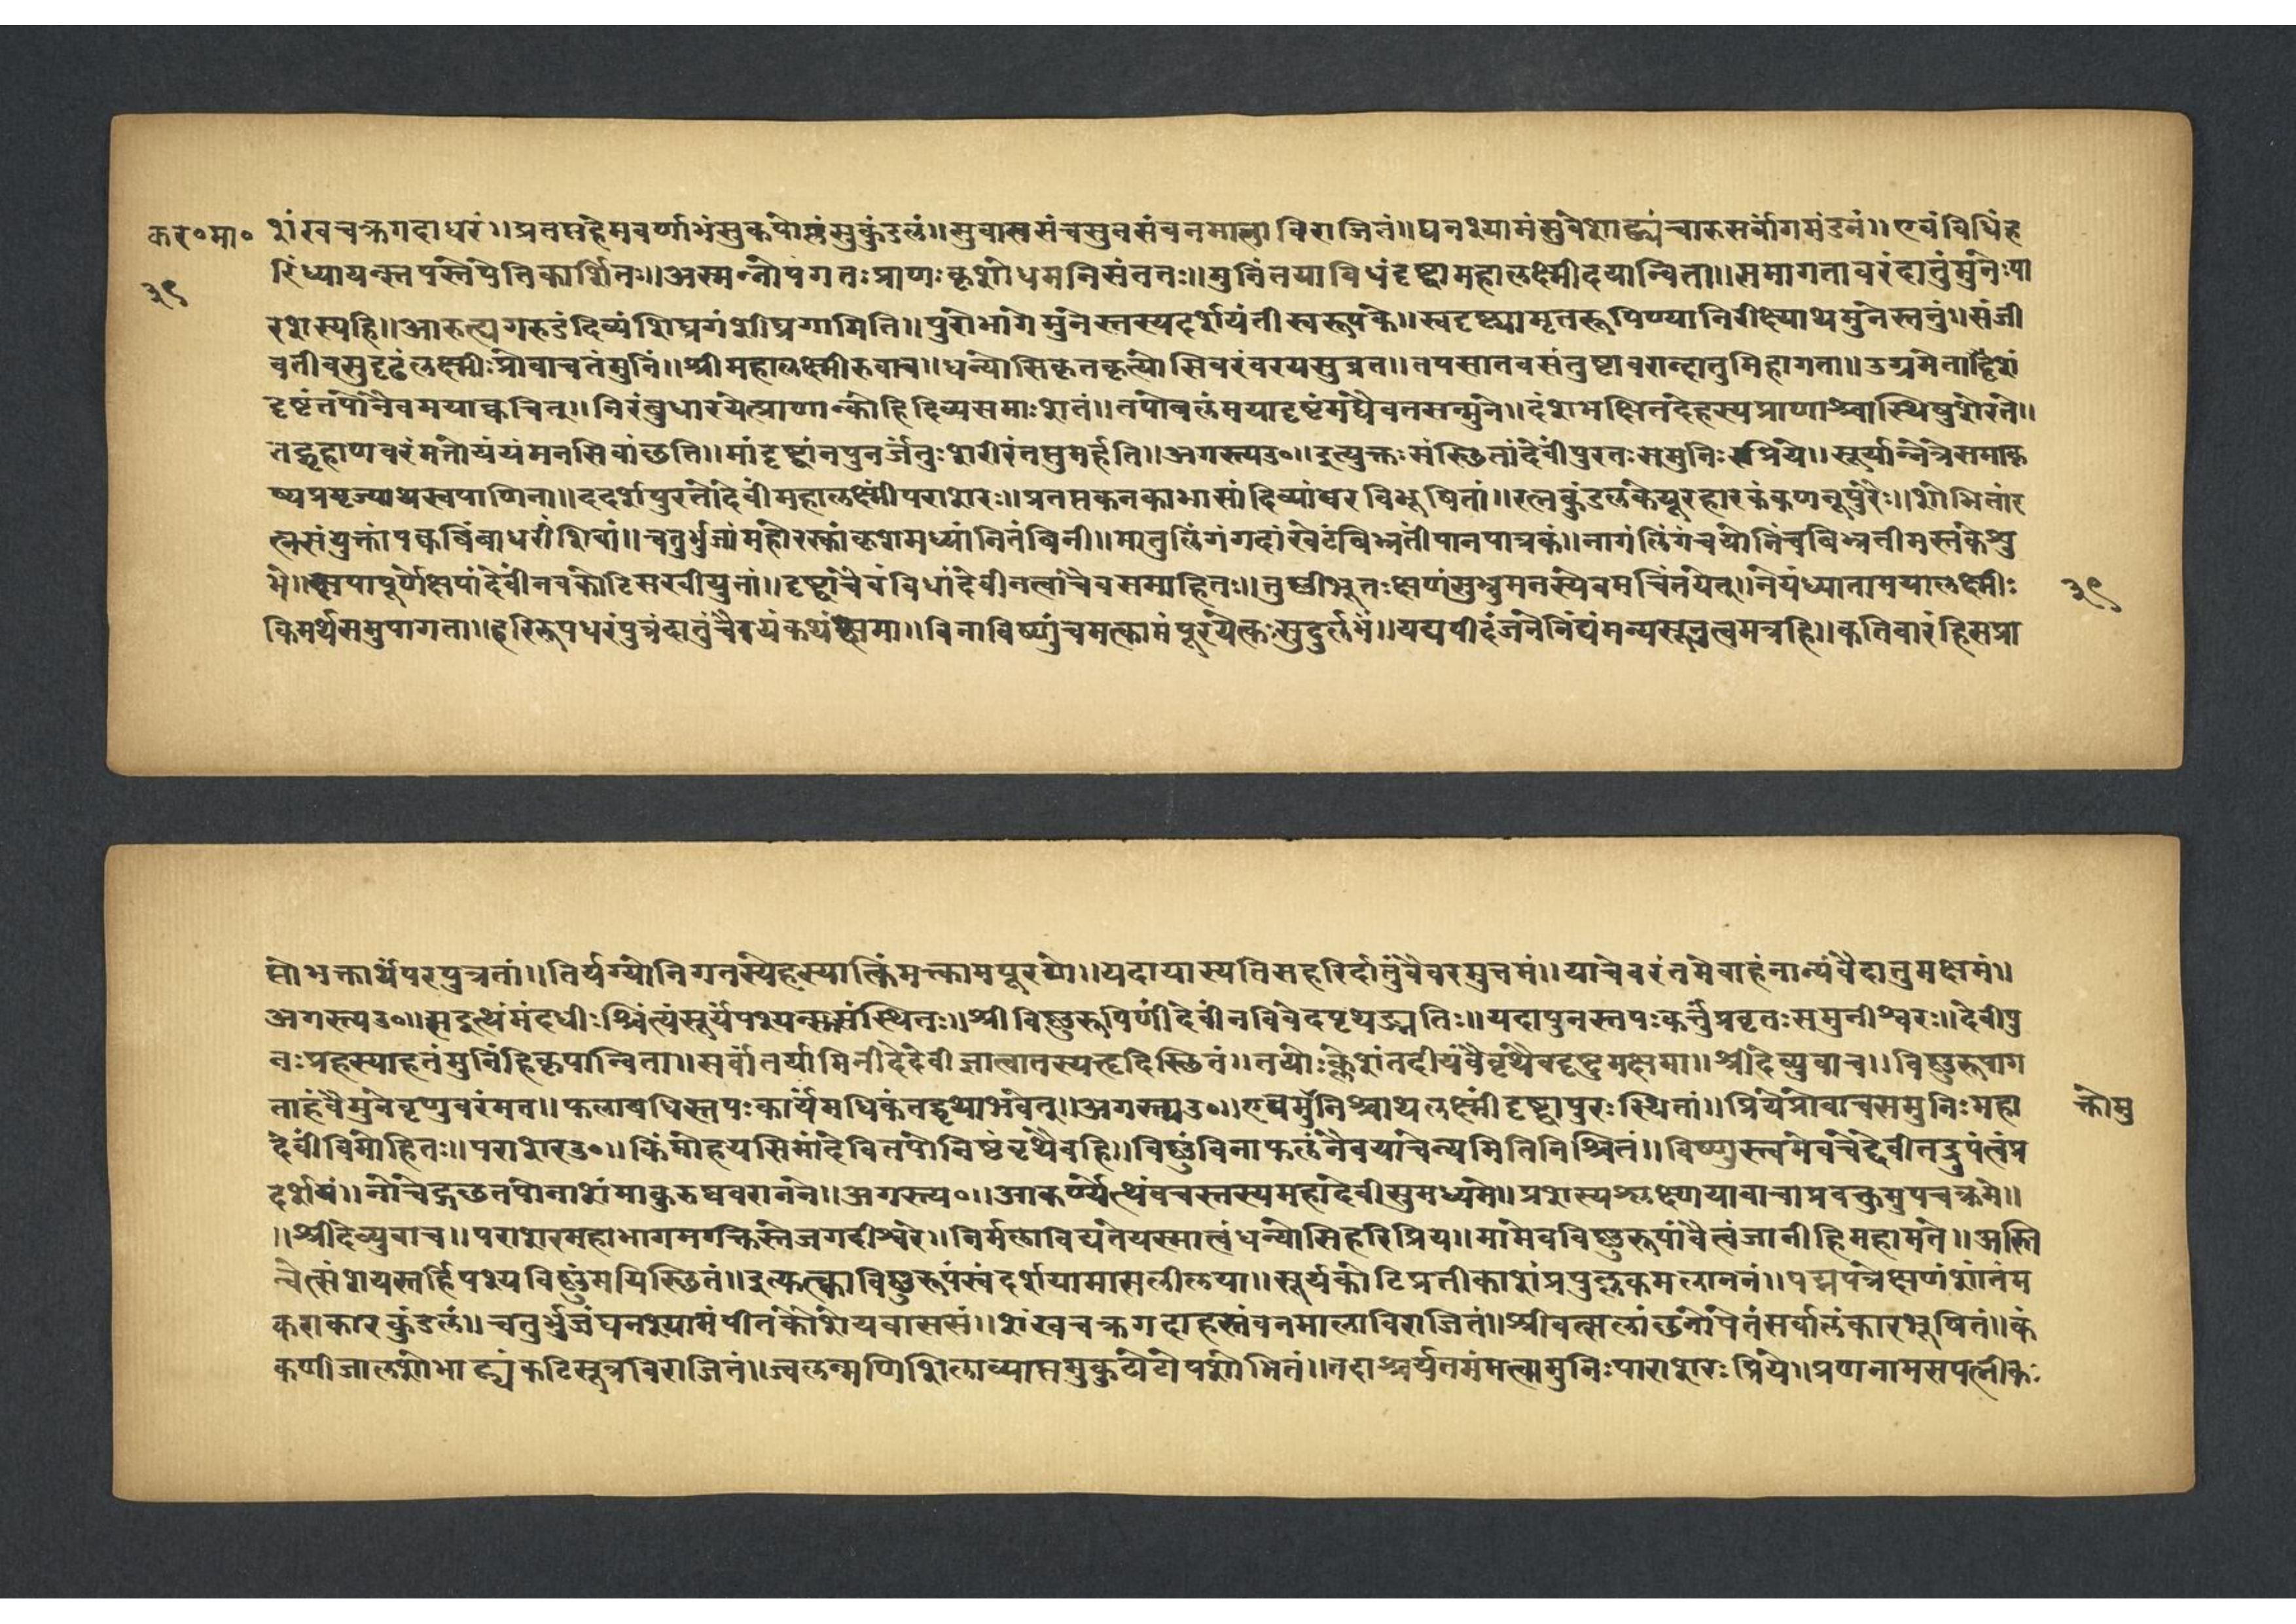 कर॰मा॰ शंखचक्रगदाधरं॥प्रतप्तहेमवर्णाभंसुकपोलंसुकुंडलं॥सुवाससंचसुवसंवनमालाविराजितं॥घनश्यामंसुवेशाढ्यंचारुसर्वांगमंडनं॥एवंविधिंह
३९ रिंध्यायन्स्तपस्तेपेतिकार्शितः॥अस्मन्नोपगतःप्राणःकृशोधमनिसंततः॥मुनिंतयाविधंदृष्ट्वामहालक्ष्मीदयान्विता॥समागतावरंदातुंमुनेःपा
रशस्यहि॥आरुत्यगरुडंदिव्यंशिघ्रगंशीघ्रगामिति॥पुरोभागेमुनेस्तस्यदर्शयंतीस्वरूपकं॥स्वदृष्ट्यामृतरूपिण्यानिरीक्ष्याथमुनेस्तनुं॥संजी
वतीवसुदृढंलक्ष्मीःप्रोवाचतंमुनिं॥श्रीमहालक्ष्मीरुवाच॥धन्योसिकृतकृत्योसिवरंवरयसुव्रत॥तपसातवसंतुष्टावरान्दातुमिहागता॥उग्रमेतादृशं
दृष्टंतपोनैवमयाक्वचित्॥निरंबुधारयेत्प्राणान्कोहिदिव्यसमाःशतं॥तपोबलंमयादृष्टंमद्यैवतसन्मुने॥दंशभक्षितदेहस्यप्राणाश्वास्थिषुशेरते॥
तद्गृहाणवरंमत्तोयंयंमनसिवांछति॥मांदृष्ट्वांनपुनर्जंतुःशरीरंतप्तुमर्हति॥अगस्त्यउ॰॥इत्युक्तःसंस्छितांदेवींपुरतःसमुनिःप्रिये॥सूर्यान्नेत्रेसमाकृ
ष्यप्रमृज्याथस्वपाणिना॥ददर्शपुरतोदेवींमहालक्ष्मींपराशरः॥प्रतप्तकनकाभासांदिव्यांबरविभूषितां॥रत्नकुंडलकेयूरहारकंकणनूपुरैः॥शोभितांर
त्नसंयुक्तांपक्वबिंबाधरांशिवां॥चतुर्भुजांमहोरस्कांकृशमध्यांनितंबिनी॥मातुलिंगंगदांखेटंबिभ्रतींपानपात्रकं॥नागंलिंगंचयोनिंचबिभ्रतीमस्तकेशु
भे॥कृपापूर्णेक्षणांदेवींनवकोटिसखीयुतां॥दृष्ट्वांचैवंविधांदेवींनत्वांचैवसमाहितः॥तुष्णींभूतःक्षणंसुभ्रुमनस्येवमचिंतयेत्॥नेयंध्यातामयालक्ष्मीः ३९
किमर्थंसमुपागता॥हरिरूपधरंपुत्रंदातुंचैवयंकथंक्षमा॥विनाविष्णुंचमत्कामंपूरयेत्कःसुदुर्लभं॥यद्यपीदंजनैर्निंद्यंमन्यसूनुत्वमत्रहि॥कतिवारंहिसप्रा
प्तोभक्तार्थेपरपुत्रतां॥तिर्यग्योनिगतस्येहस्यात्किंमत्कामपूरणे॥यदायास्यतिसहरिर्दातुंवैवरमुत्तमं॥याचेवरंतमेवाहंनान्यंवैदातुमक्षमं॥
अगस्त्यउ॰॥सइत्थंमंदधीःश्चिंत्यंसूर्यंपश्यन्समंस्थितः॥श्रीविष्णुरूपिणींदेवींनविवेदपृथङ्मतिः॥यदापुनस्तपःकर्त्तुंप्रवृतःसमुनीश्वरः॥देवीपु
नःप्रहस्याहतंमुनिंहिकृपान्विता॥सर्वांतर्यामिनीदैदेवीज्ञात्वातस्यहृदिस्छितं॥तयोःक्लेशंतदीयंवैवृथैवदृष्टुमक्षमा॥श्रीदेव्युवाच॥विष्णुरूपाग
ताहंवैमुनेवृणुवरंमत॥फलावधिस्तपःकार्यमधिकंतद्वृथाभवेत्॥अगस्त्यउ॰॥एवंमुनिश्चाथलक्ष्मींदृष्ट्वापुरःस्थितां॥प्रियेप्रोवाचसमुनिःमहा क्तोमु
देवींविमोहितः॥पराशरउ॰॥किंमोहयसिमांदेवितपोन्निष्टंवृथैवहि॥विष्णुंविनाफलंनैवयाचेन्यमितिनिश्चितं॥विष्णुस्त्वमेवचेद्देवीतद्रुपंत्वंप्र
दर्शयं॥नोचेद्गच्छतपोनाशंमाकुरुष्ववरानने॥अगस्त्य॰॥आकर्ण्येत्थंवचस्तस्यमहादेवीसुमध्यमे॥प्रशस्यश्लक्ष्णयावाचाप्रवक्तुमुपचक्रमे॥
॥श्रीदेव्युवाच॥पराशरमहाभागमगक्तिस्तेजगदीश्वरे॥निर्मलाविद्यतेयस्मात्वंधन्योसिहरिप्रिय॥मामेवविष्णुरूपांवैत्वंजानीहिमहामते॥अस्ति
चेत्संशयस्तर्हिपश्यविष्णुंमयिस्छितं॥इत्यक्त्काविष्णुरूपंस्वंदर्शयामासलीलया॥सूर्यकोटिप्रतीकाशंप्रफुल्लकमलाननं॥पद्मपत्रेक्षणंशांतंम
कराकारकुंडलं॥चतुर्भुजंघनश्यामंपीतकौशेयवाससं॥शंखचक्रगदाहस्तंवनमालाविराजितं॥श्रीवत्सलांछनोपेतंसर्वालंकारभूषितं॥कं
कणीजालशोभाढ्यंकटिसूत्रविराजितं॥ज्वलन्मणिशिलाव्याप्तमुकुटाटोपशोभितं॥तदाश्चर्यतमंमत्वामुनिःपाराशरःप्रिये॥प्रणनामसपत्नीकः